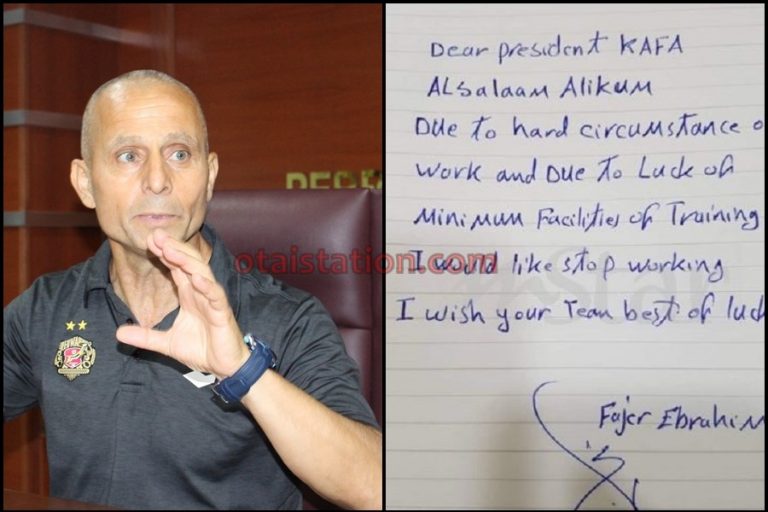 Dear president KAFA
ALsalaam Alikum
Due to hard circumstance
Work and Due to Luck of
Minimum Facilities of Training
I would like stop working
I wish your Team best of luck
Fajer Ebrahim
otaistation.com